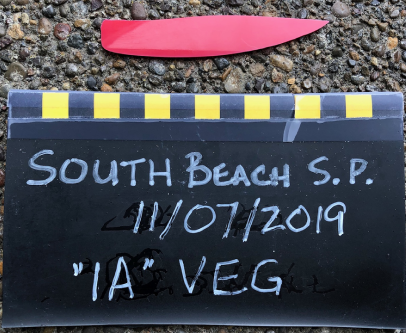 SOUTH BEACH S.P.
11/07/2019
"1A" VEG